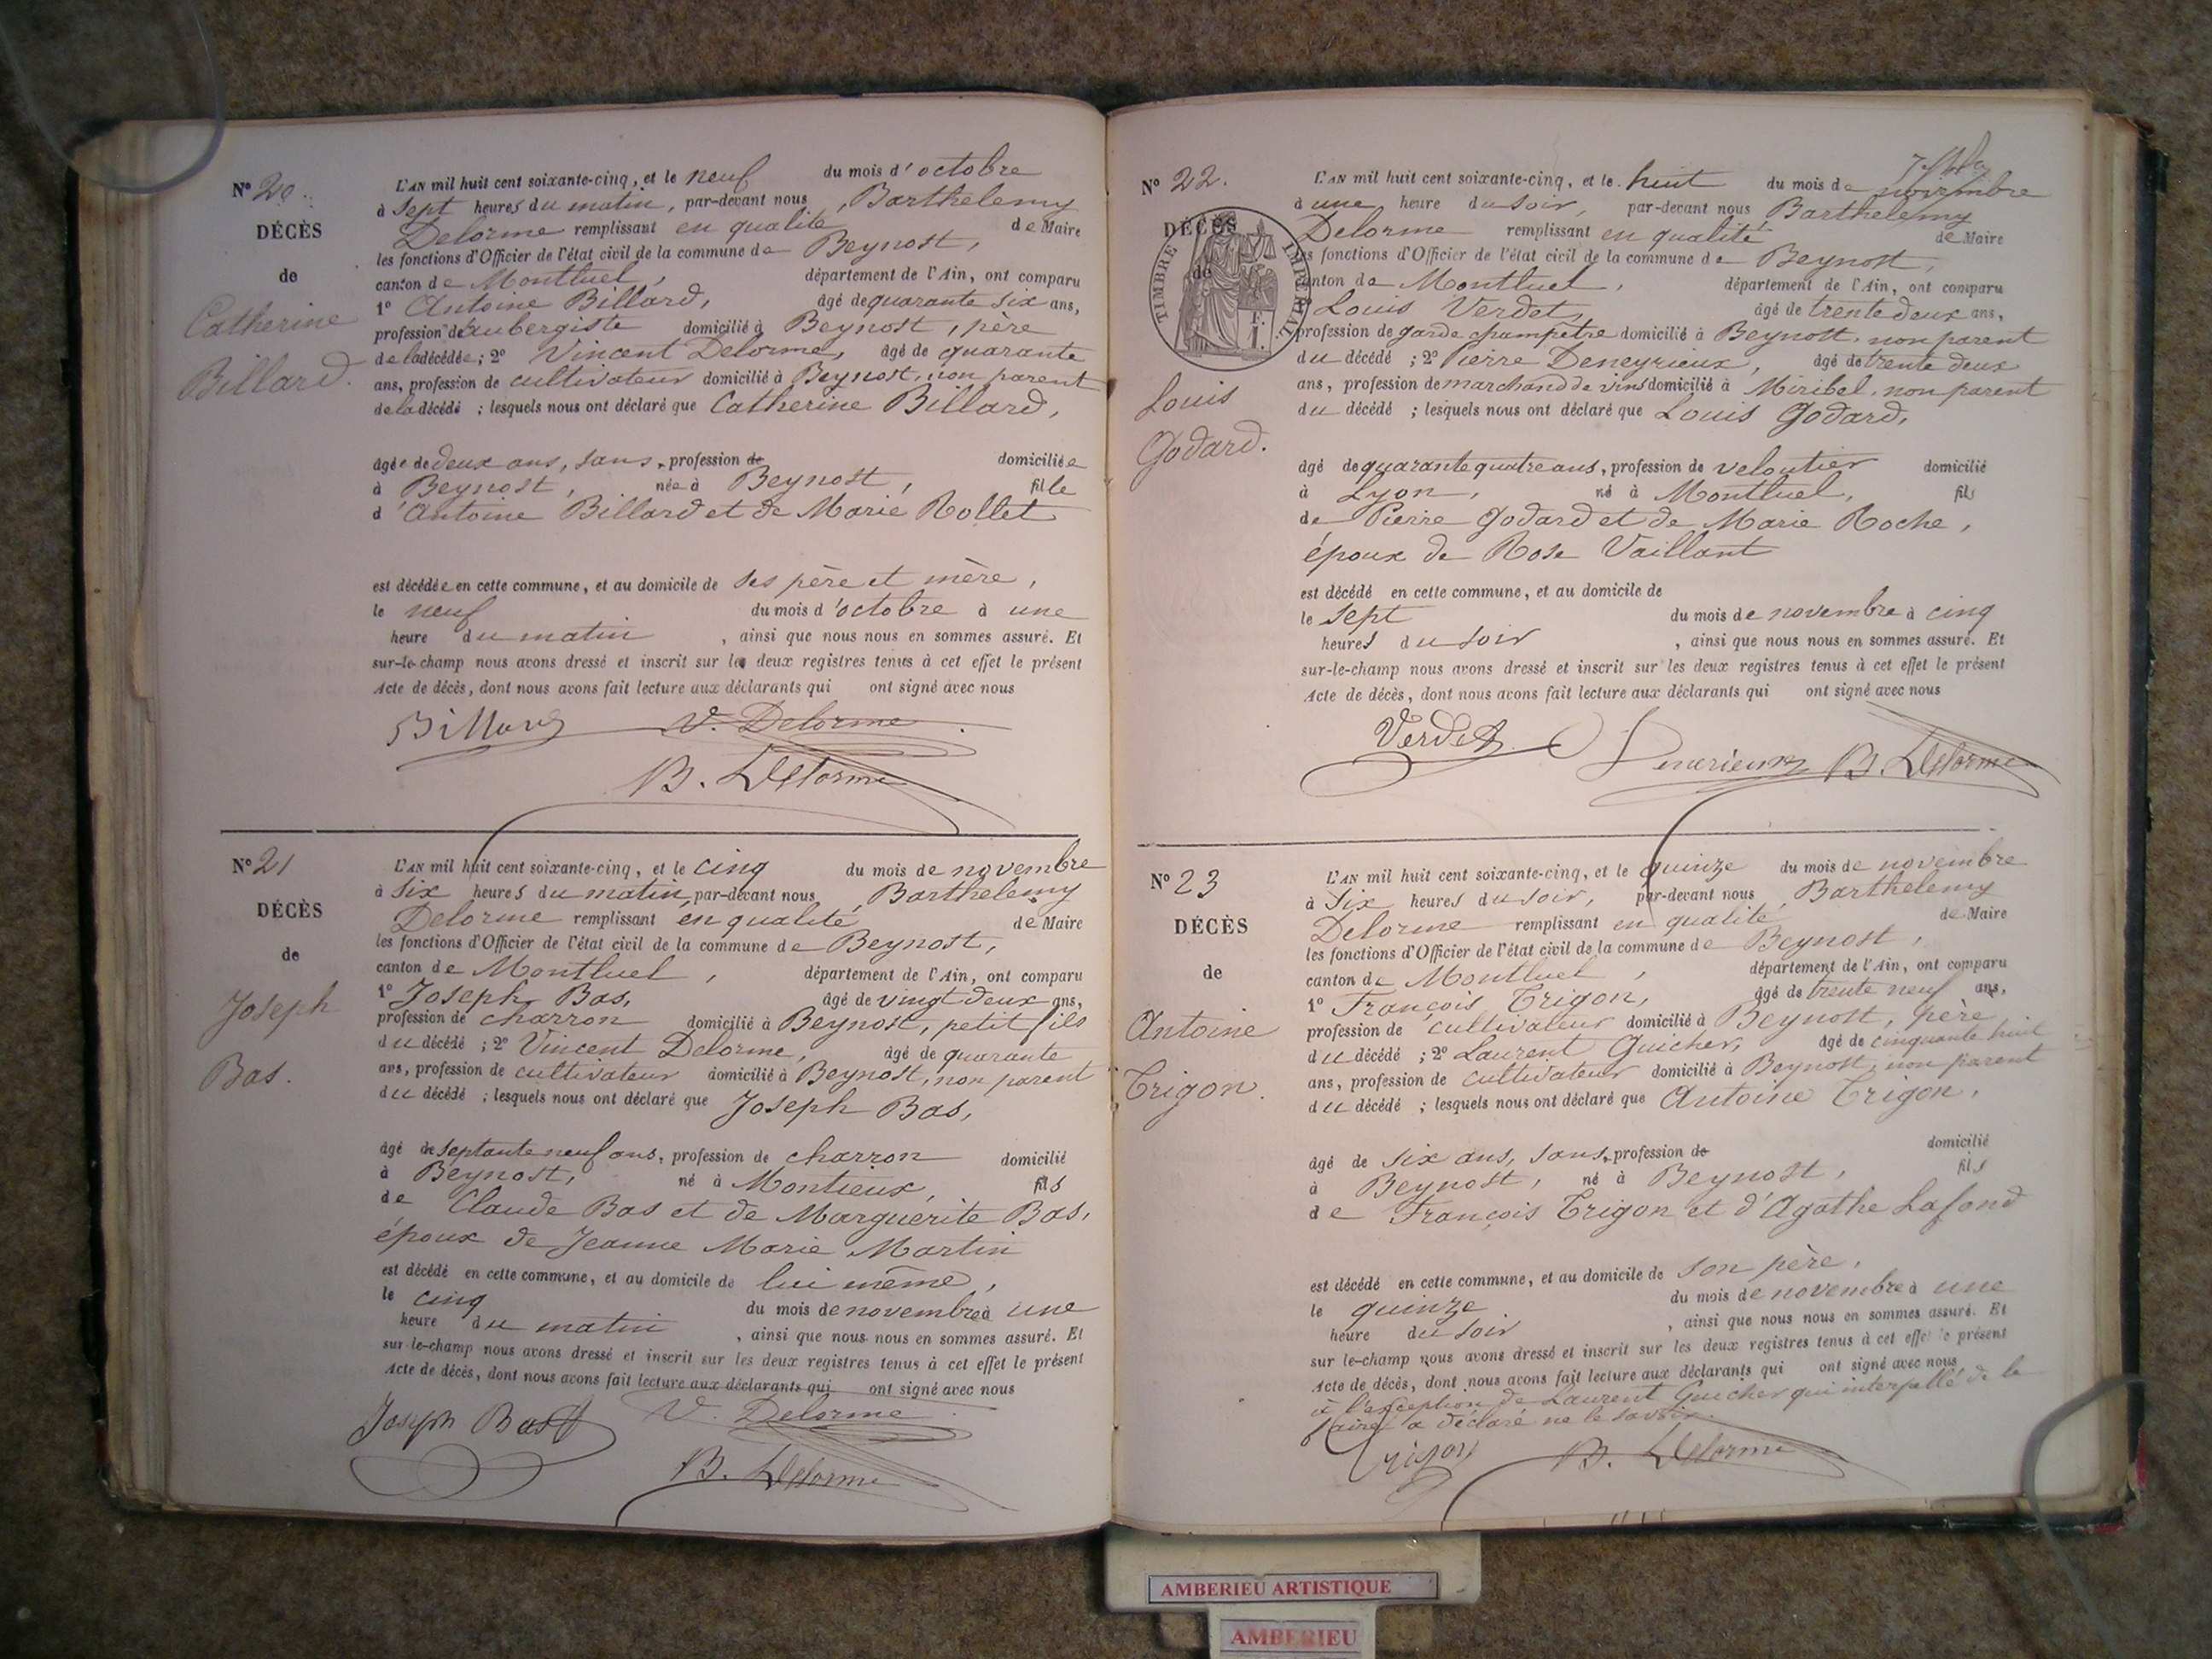 N° 20.
DÉCÈS
de
Catherine
Billard.
L'AN mil huit cent soixante-cinq, et le neuf du mois d'octobre
à sept heures du matin, par-devant nous, Barthelemy
Delorme remplissant en qualité de Maire
les fonctions d'Officier de l'état civil de la commune de Beynost,
canton de Montluel, département de l'Ain, ont comparu
1° Antoine Billard, âgé de quarante six ans,
profession de aubergiste domicilié à Beynost, père
de la décédée ; 2° Vincent Delorme, âgé de quarante
ans, profession de cultivateur domicilié à Beynost, non parent
de la décédé ; lesquels nous ont déclaré que Catherine Billard,
âgée de deux ans, sans profession de domiciliée
à Beynost, née à Beynost, fille
d'Antoine Billard et de Marie Rollet
est décédée en cette commune, et au domicile de ses père et mère,
le neuf du mois d'octobre à une
heure du matin, ainsi que nous nous en sommes assuré. Et
sur-le-champ nous avons dressé et inscrit sur les deux registres tenus à cet effet le présent
Acte de décès, dont nous avons fait lecture aux déclarants qui ont signé avec nous
Billard V. Delorme
B. Delorme
N° 21
DÉCÈS
de
Joseph
Bas.
L'AN mil huit cent soixante-cinq, et le cinq du mois de novembre
à six heures du matin, par-devant nous, Barthelemy
Delorme remplissant en qualité de Maire
les fonctions d'Officier de l'état civil de la commune de Beynost,
canton de Montluel, département de l'Ain, ont comparu
1° Joseph Bas, âgé de vingt deux ans,
profession de charron domicilié à Beynost, petit fils
du décédé ; 2° Vincent Delorme, âgé de quarante
ans, profession de cultivateur domicilié à Beynost, non parent
du décédé ; lesquels nous ont déclaré que Joseph Bas,
âgé de septante neuf ans, profession de charron domicilié
à Beynost, né à Montieux, fils
de Claude Bas et de Marguerite Bas,
époux de Jeanne Marie Martin
est décédé en cette commune, et au domicile de lui même,
le cinq du mois de novembre à une
heure du matin, ainsi que nous nous en sommes assuré. Et
sur-le-champ nous avons dressé et inscrit sur les deux registres tenus à cet effet le présent
Acte de décès, dont nous avons fait lecture aux déclarants qui ont signé avec nous
Joseph Bas V. Delorme
B. Delorme
N° 22.
DÉCÈS
de
TIMBRE IMPÉRIAL
F.
1.
Louis
Godard.
L'AN mil huit cent soixante-cinq, et le huit du mois de novembre
à une heure du soir, par-devant nous Barthelemy
Delorme remplissant en qualité de Maire
les fonctions d'Officier de l'état civil de la commune de Beynost,
canton de Montluel, département de l'Ain, ont comparu
Louis Verdet, âgé de trente deux ans,
profession de garde champêtre domicilié à Beynost, non parent
du décédé ; 2° Pierre Deneyrieux, âgé de trente deux
ans, profession de marchand de vins domicilié à Miribel, non parent
du décédé ; lesquels nous ont déclaré que Louis Godard,
âgé de quarante quatre ans, profession de veloutier domicilié
à Lyon, né à Montluel, fils
de Pierre Godard et de Marie Roche,
époux de Rose Vaillant
est décédé en cette commune, et au domicile de
le sept du mois de novembre à cinq
heures du soir, ainsi que nous nous en sommes assuré. Et
sur-le-champ nous avons dressé et inscrit sur les deux registres tenus à cet effet le présent
Acte de décès, dont nous avons fait lecture aux déclarants qui ont signé avec nous
Verdet B. Delorme
N° 23
DÉCÈS
de
Antoine
Trigon.
L'AN mil huit cent soixante-cinq, et le quinze du mois de novembre
à six heures du soir, par-devant nous, Barthelemy
Delorme remplissant en qualité de Maire
les fonctions d'Officier de l'état civil de la commune de Beynost,
canton de Montluel, département de l'Ain, ont comparu
1° François Trigon, âgé de trente neuf ans,
profession de cultivateur domicilié à Beynost, père
du décédé ; 2° Laurent Guicher, âgé de cinquante huit
ans, profession de cultivateur domicilié à Beynost, non parent
du décédé ; lesquels nous ont déclaré que Antoine Trigon,
âgé de six ans, sans profession de domicilié
à Beynost, né à Beynost, fils
de François Trigon et d'Agathe Lafond
est décédé en cette commune, et au domicile de son père,
le quinze du mois de novembre à une
heure du soir, ainsi que nous nous en sommes assuré. Et
sur le-champ nous avons dressé et inscrit sur les deux registres tenus à cet effet le présent
Acte de décès, dont nous avons fait lecture aux déclarants qui ont signé avec nous
à l'exception de Laurent Guicher qui interpellé de le
faire a déclaré ne le savoir.
Trigon B. Delorme
AMBERIEU ARTISTIQUE
AMBERIEU